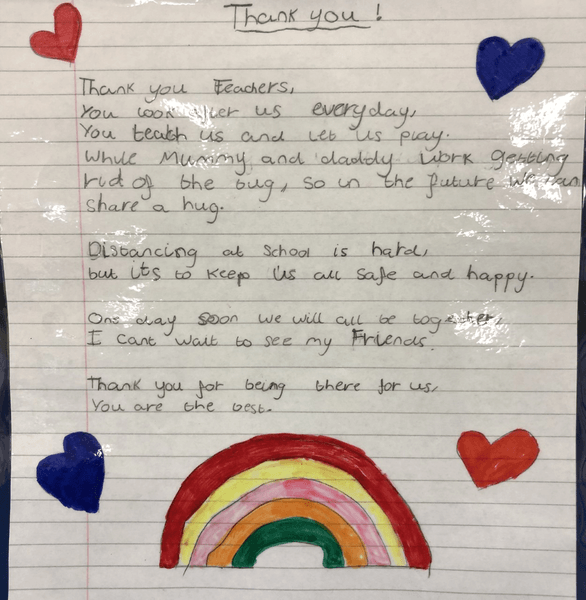 Thank you !
Thank you Teachers,
You look after us everyday,
You teach us and let us play.
While Mummy and daddy work getting
rid of the bug, so in the future we can
share a hug.
Distancing at school is hard,
but its to keep us all safe and happy.
One day soon we will all be together,
I cant wait to see my Friends.
Thank you for being there for us,
You are the best.